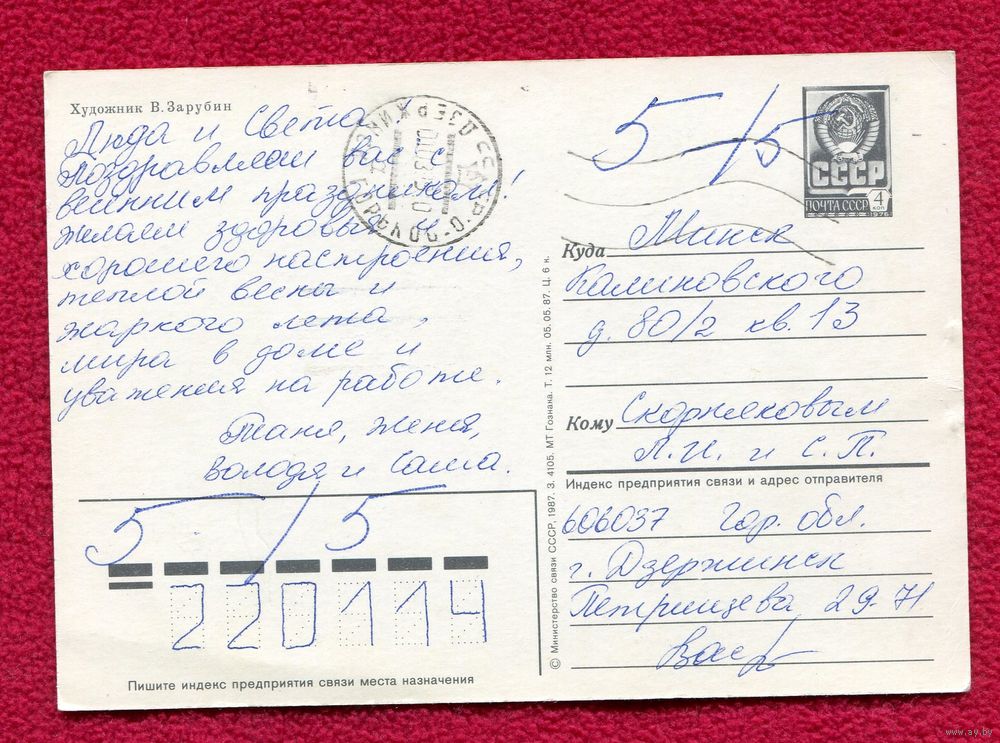 Художник В. Зарубин
Люда и Света
Поздравляем вас с
весенним праздником!
желаем здоровья и
хорошего настроения,
теплой весны и
жаркого лета,
мира в доме и
уважения на работе.
Таня, Женя,
Володя и Саша.
5/5
220114
Пишите индекс предприятия связи места назначения
© Министерство связи СССР, 1987. З. 4105. МТ Гознака. Т. 12 млн. 05.05.87. Ц. 6 к.
5/5
СССР
ПОЧТА СССР 4 КОП
1976
Куда Минск
Калиновского
д. 80/2 кв. 13
Кому Скорняковым
Л.И. и С.П.
Индекс предприятия связи и адрес отправителя
606037 Гор. обл.
г. Дзержинск
Петрищева 29-71
www.ay.by